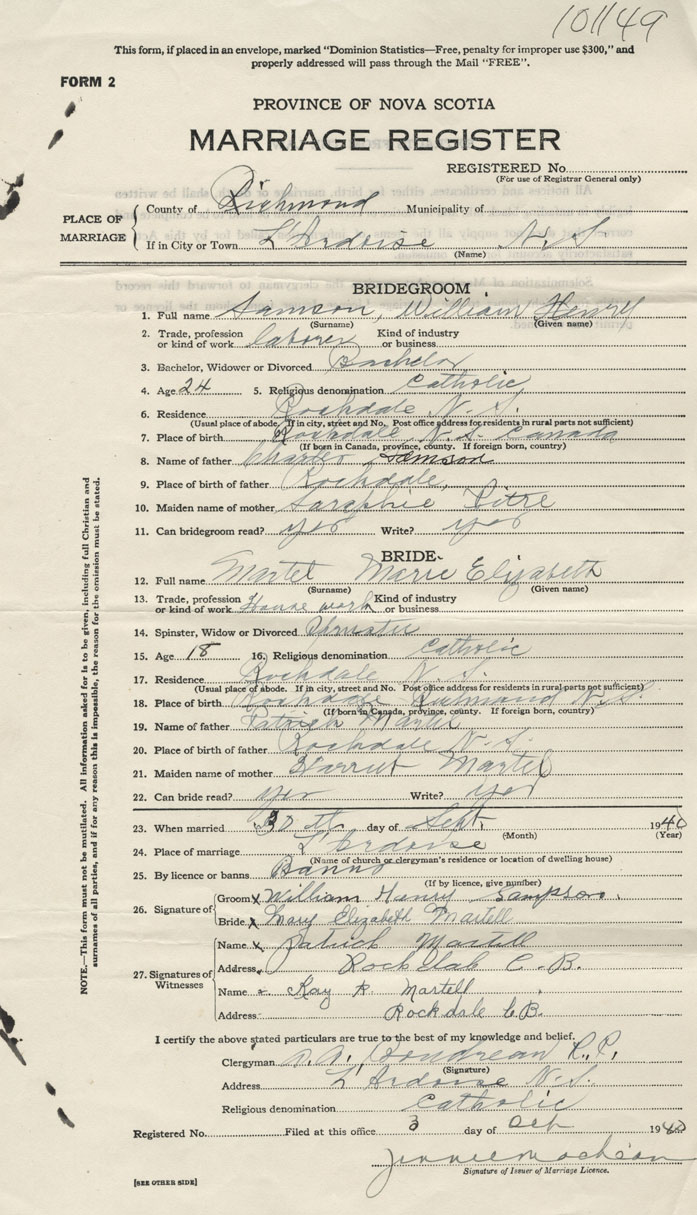 101149
This form, if placed in an envelope, marked "Dominion Statistics—Free, penalty for improper use $300," and
properly addressed will pass through the Mail "FREE".
FORM 2
PROVINCE OF NOVA SCOTIA
MARRIAGE REGISTER
REGISTERED No.
(For use of Registrar General only)
PLACE OF MARRIAGE
County of Richmond Municipality of
If in City or Town L'Ardoise N.S.
(Name)
BRIDEGROOM
1. Full name Samson, William Henry
(Surname) (Given name)
2. Trade, profession or kind of work laborer Kind of industry or business
3. Bachelor, Widower or Divorced Bachelor
4. Age 24 5. Religious denomination Catholic
6. Residence Rockdale N.S.
(Usual place of abode. If in city, street and No. Post office address for residents in rural parts not sufficient)
7. Place of birth Rockdale N.S. Canada
(If born in Canada, province, county. If foreign born, country)
8. Name of father Charles Samson
9. Place of birth of father Rockdale,
10. Maiden name of mother Saraphie Pitre
11. Can bridegroom read? yes Write? yes
BRIDE
12. Full name Martel Marie Elizabeth
(Surname) (Given name)
13. Trade, profession or kind of work House work Kind of industry or business
14. Spinster, Widow or Divorced Spinster
15. Age 18 16. Religious denomination Catholic
17. Residence Rockdale N.S.
(Usual place of abode. If in city, street and No. Post office address for residents in rural parts not sufficient)
18. Place of birth Rockdale Richmond N.S.
(If born in Canada, province, county. If foreign born, country)
19. Name of father Patrick Martel
20. Place of birth of father Rockdale N.S.
21. Maiden name of mother Harriet Martel
22. Can bride read? yes Write? yes
23. When married 30th day of Sept. 1940
(Month) (Year)
24. Place of marriage L'Ardoise
(Name of church or clergyman's residence or location of dwelling house)
25. By licence or banns Banns
(If by licence, give number)
26. Signature of
Groom x William Henry Sampson.
Bride x Mary Elizabeth Martell
27. Signatures of Witnesses
Name x Patrick Martell
Address C.B.
Name Kay R. Martell
Address Rockdale C.B.
I certify the above stated particulars are true to the best of my knowledge and belief.
Clergyman Boudreau P.P.
(Signature)
Address L'Ardoise N.S.
Religious denomination Catholic
Registered No. Filed at this office 3 day of Oct 1940
Signature of Issuer of Marriage Licence.
[SEE OTHER SIDE]
NOTE.—This form must not be mutilated. All information asked for is to be given, including full Christian and
surnames of all parties, and if for any reason this is impossible, the reason for the omission must be stated.